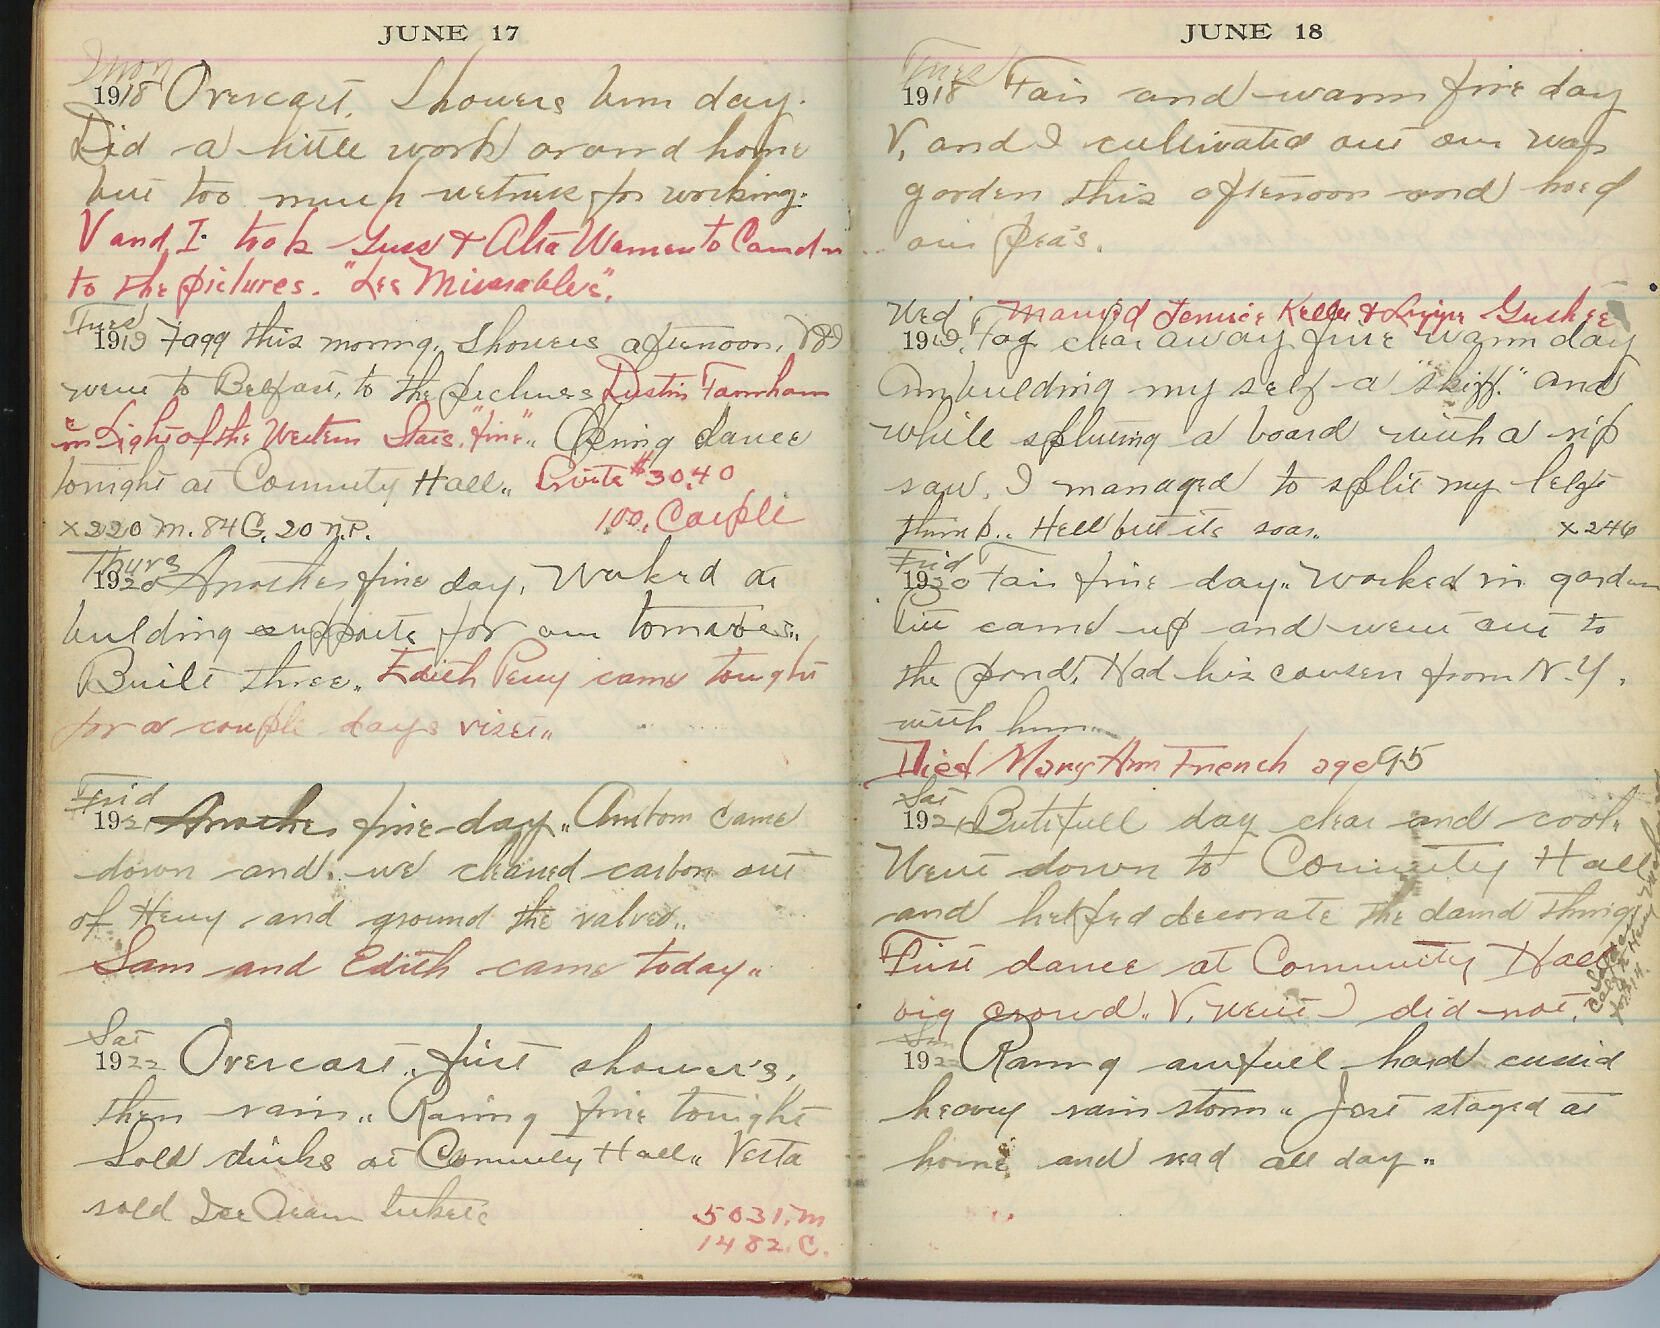 JUNE 17
Mon
1918 Overcast. Showers day.
Did a little work around home
but too much wetness for working.
V and I. took Guss & Alta Warren to Camden
to the pictures. "Les Miserables".
Tues
1919 Fogg this morning. Showers afternoon. V & I
went to Belfast, to the pictures Dustin Farnham
in Light of the Western Stars. "fine".. Opening dance
tonight at Comunity Hall.. $30.40
x220 M. 84 C. 20 N.P. 100. Couple
Thurs
1920 Another fine day. Worked at
bulding supports for our tomatoes..
Built three.. Edith Perry came tonight
for a couple days viset..
Frid
1921 Another fine day.. came
down and we cleaned carbon out
of Henry and ground the valves..
Sam and Edith came today..
Sat
1922 Overcast.. first shower's,
then rain.. Raining fine tonight
Sold drinks at Comunity Hall.. Vesta
sold Ice Cream tickets
5031. M
1482. C.
JUNE 18
Tues
1918 Fair and warm fine day
V. and I cultivated out our war
garden this afternoon and hoed
our pea's.
Wed Married Kelley & Gushee
1919. Fog clear away fine warm day
Am building my self a "skiff." and
while spliting a board with a rip
saw. I managed to split my left
thumb.. Hell but its soar.. x246
Frid
1920 Fair fine day.. Worked in garden
came up and went out to
the pond. Had his cousen from N.Y.
with him..
Died Mary Ann French age 95
Sat
1921 Butifull day clear and cool..
Went down to Comunity Hall
and helped decorate the damd thing
First dance at Community Hall
big crowd.. V. went I did not.
Sun
1922 Raning awfull hard
heavy rain storm.. Jest stayed at
home and read all day..